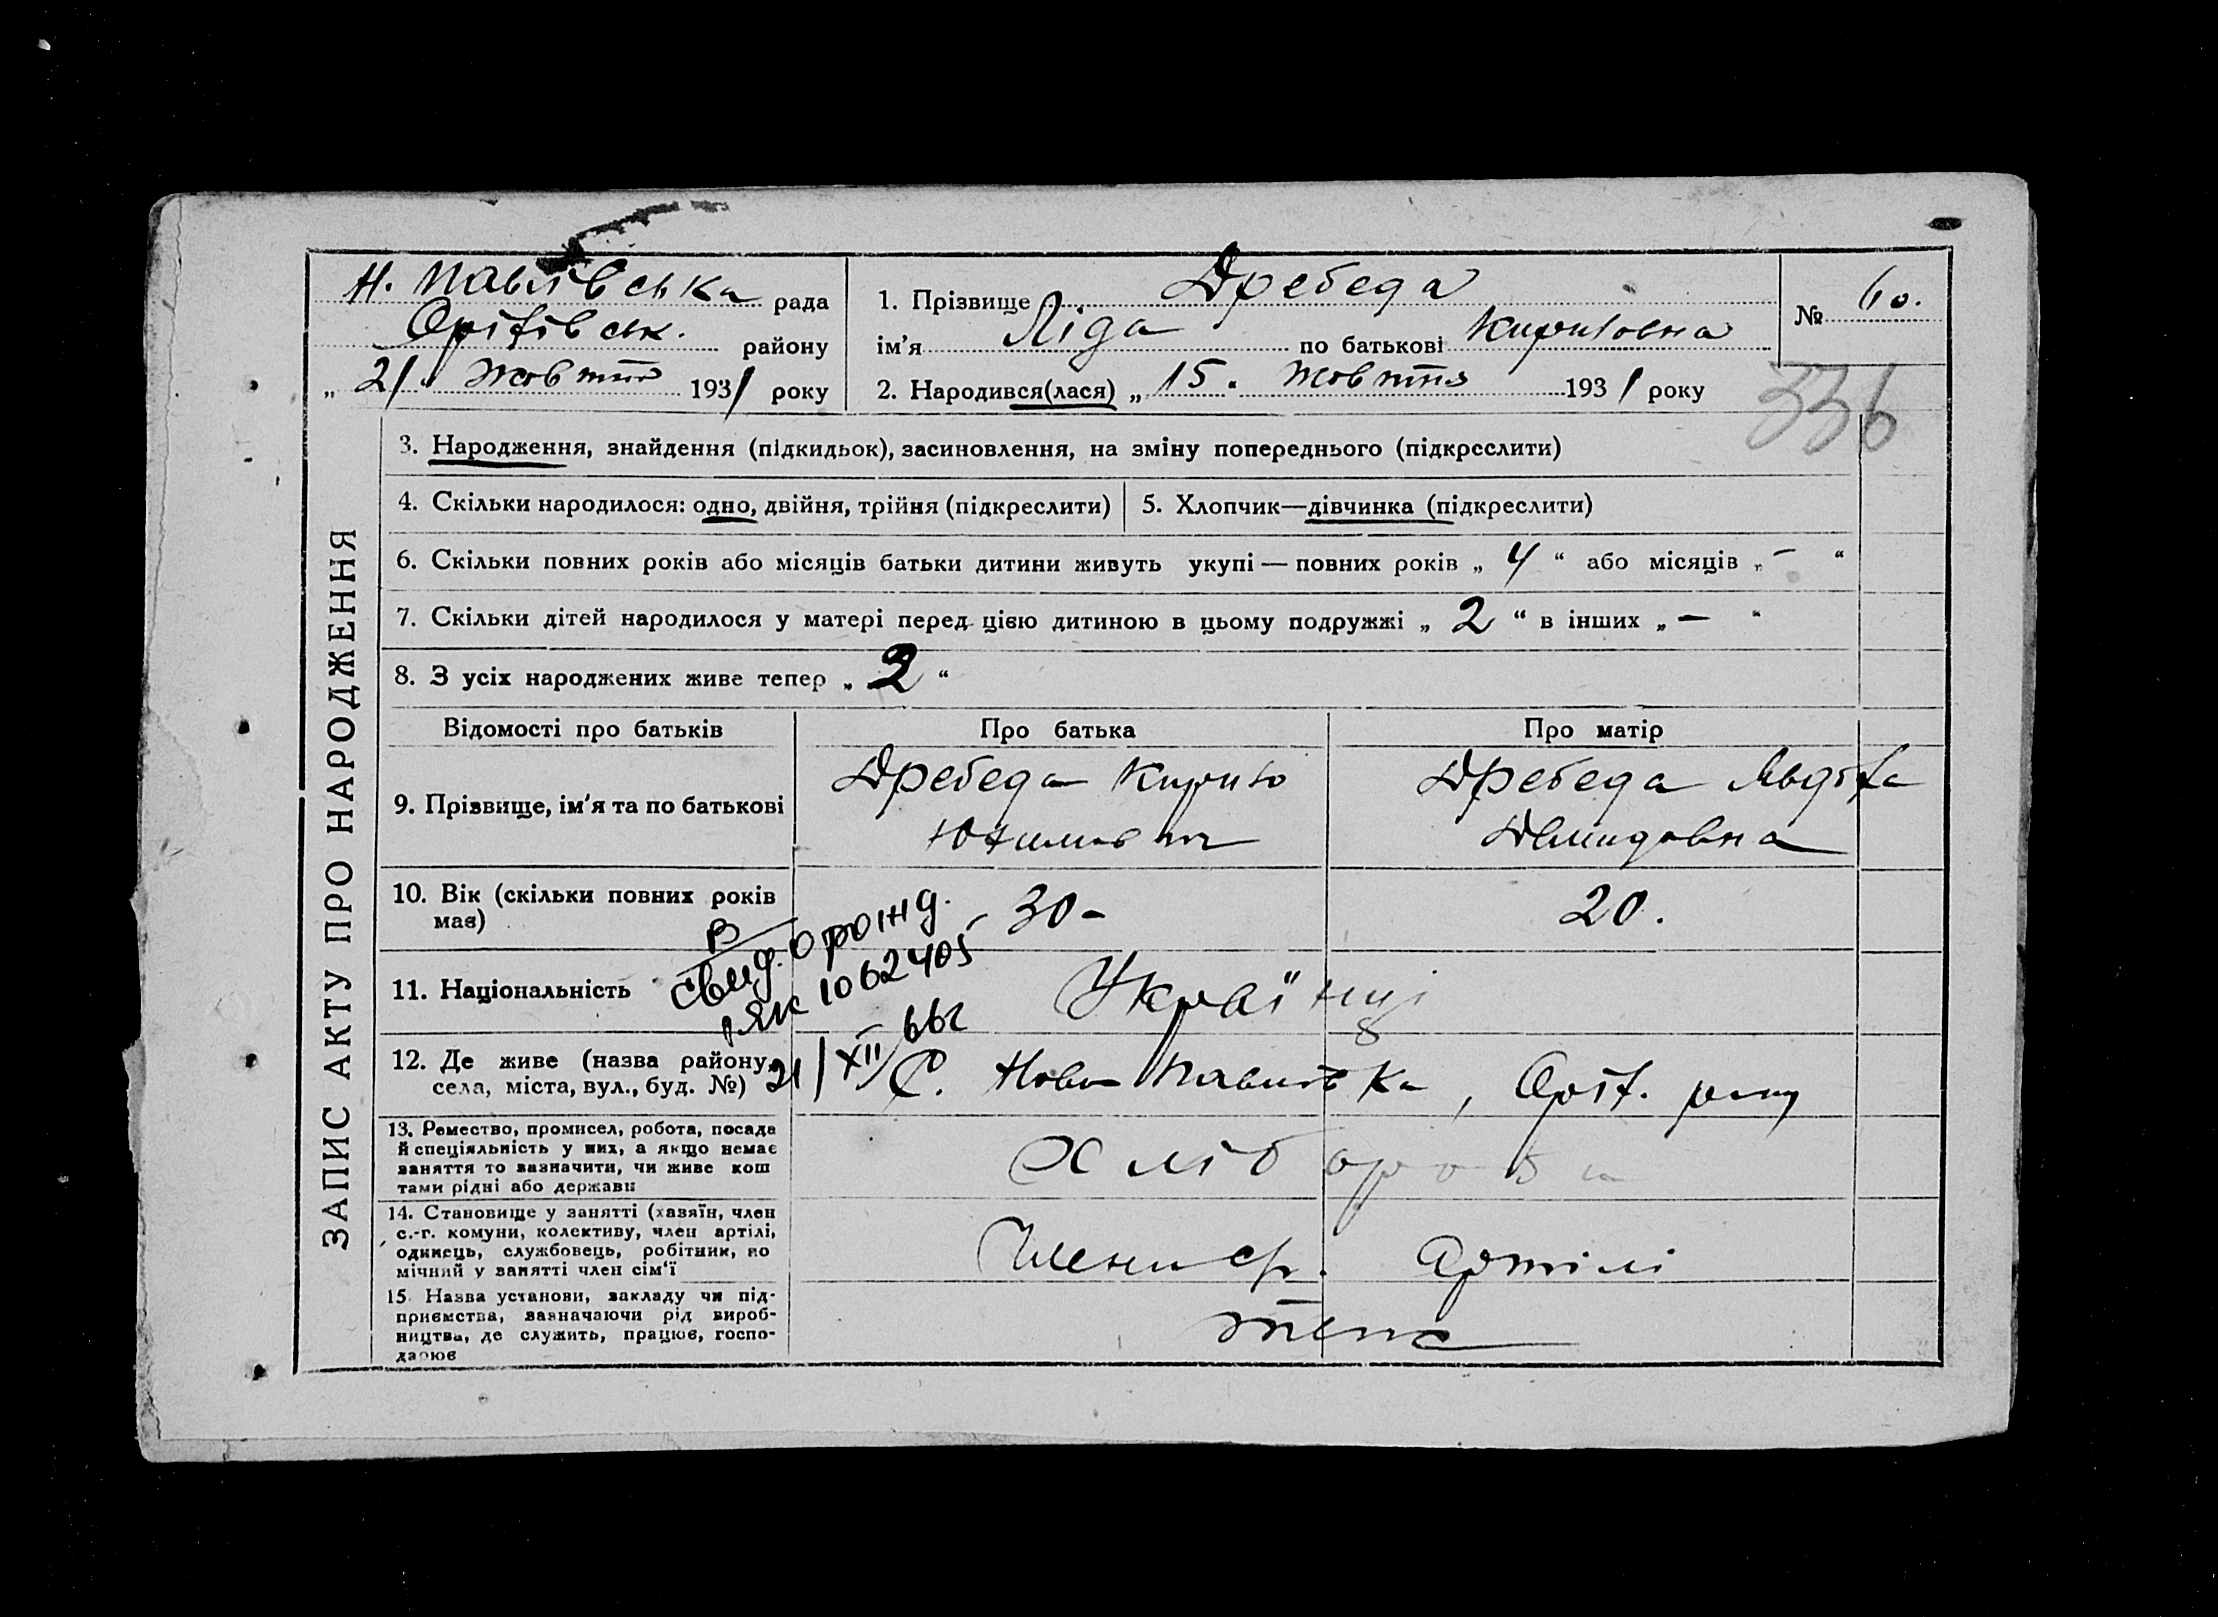 Н. Павлівська рада
Оріхівськ. району
„ 21 " Жовтня 1931 року
1. Прізвище Дребеда
ім’я Ліда по батькові Кириловна
2. Народився(лася) „ 15 " Жовтня 1931 року
№ 60.
336
ЗАПИС АКТУ ПРО НАРОДЖЕННЯ
3. Народження, знайдення (підкидьок), засиновлення, на зміну попереднього (підкреслити)
4. Скільки народилося: одно, двійня, трійня (підкреслити)
5. Хлопчик—дівчинка (підкреслити)
6. Скільки повних років або місяців батьки дитини живуть укупі — повних років „ 4 “ або місяців „ – “
7. Скільки дітей народилося у матері перед цією дитиною в цьому подружжі „ 2 “ в інших „ – “
8. З усіх народжених живе тепер „ 2 “
Відомості про батьків
Про батька
Про матір
9. Прізвище, ім’я та по батькові
Дребеда Кирило
Юхимович
Дребеда Явдоха
Демидовна
10. Вік (скільки повних років
має)
30 –
20.
В
свид. о рожд.
ЯК 1062405
21/XII 66г
11. Національність
Українці
12. Де живе (назва району,
села, міста, вул., буд. №)
С. Ново Павлівка, Оріх. рну
13. Ремество, промисел, робота, посада
й спеціяльність у них, а якщо немає
заняття то зазначити, чи живе кош
тами рідні або держави
Хлібороби
14. Становище у занятті (хазяїн, член
с.-г. комуни, колективу, член артілі,
одинець, службовець, робітник, по
мічний у занятті член сім’ї
Члени ср. Артілі
15. Назва установи, закладу чи під-
приємства, зазначаючи рід вироб-
ництва, де служить, працює, госпо-
дарює